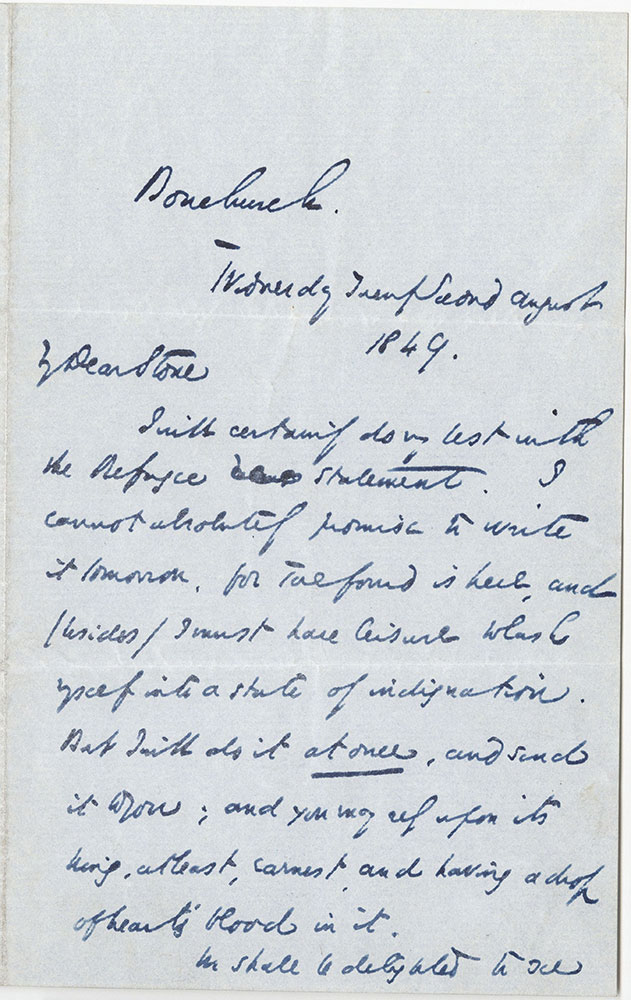 Bonchurch.
Wednesday Twenty Second August
1849.
My Dear Stone
I will certainly do my best with
the Refugee statement. I
cannot absolutely promise to write
it tomorrow, for Talfourd is here, and
/besides/ I must have leisure to lash
myself into a state of indignation.
But I will do it at once, and send
it to you; and you may rely upon its
being, at least, earnest, and having a drop
of heart's blood in it.
We shall be delighted to see